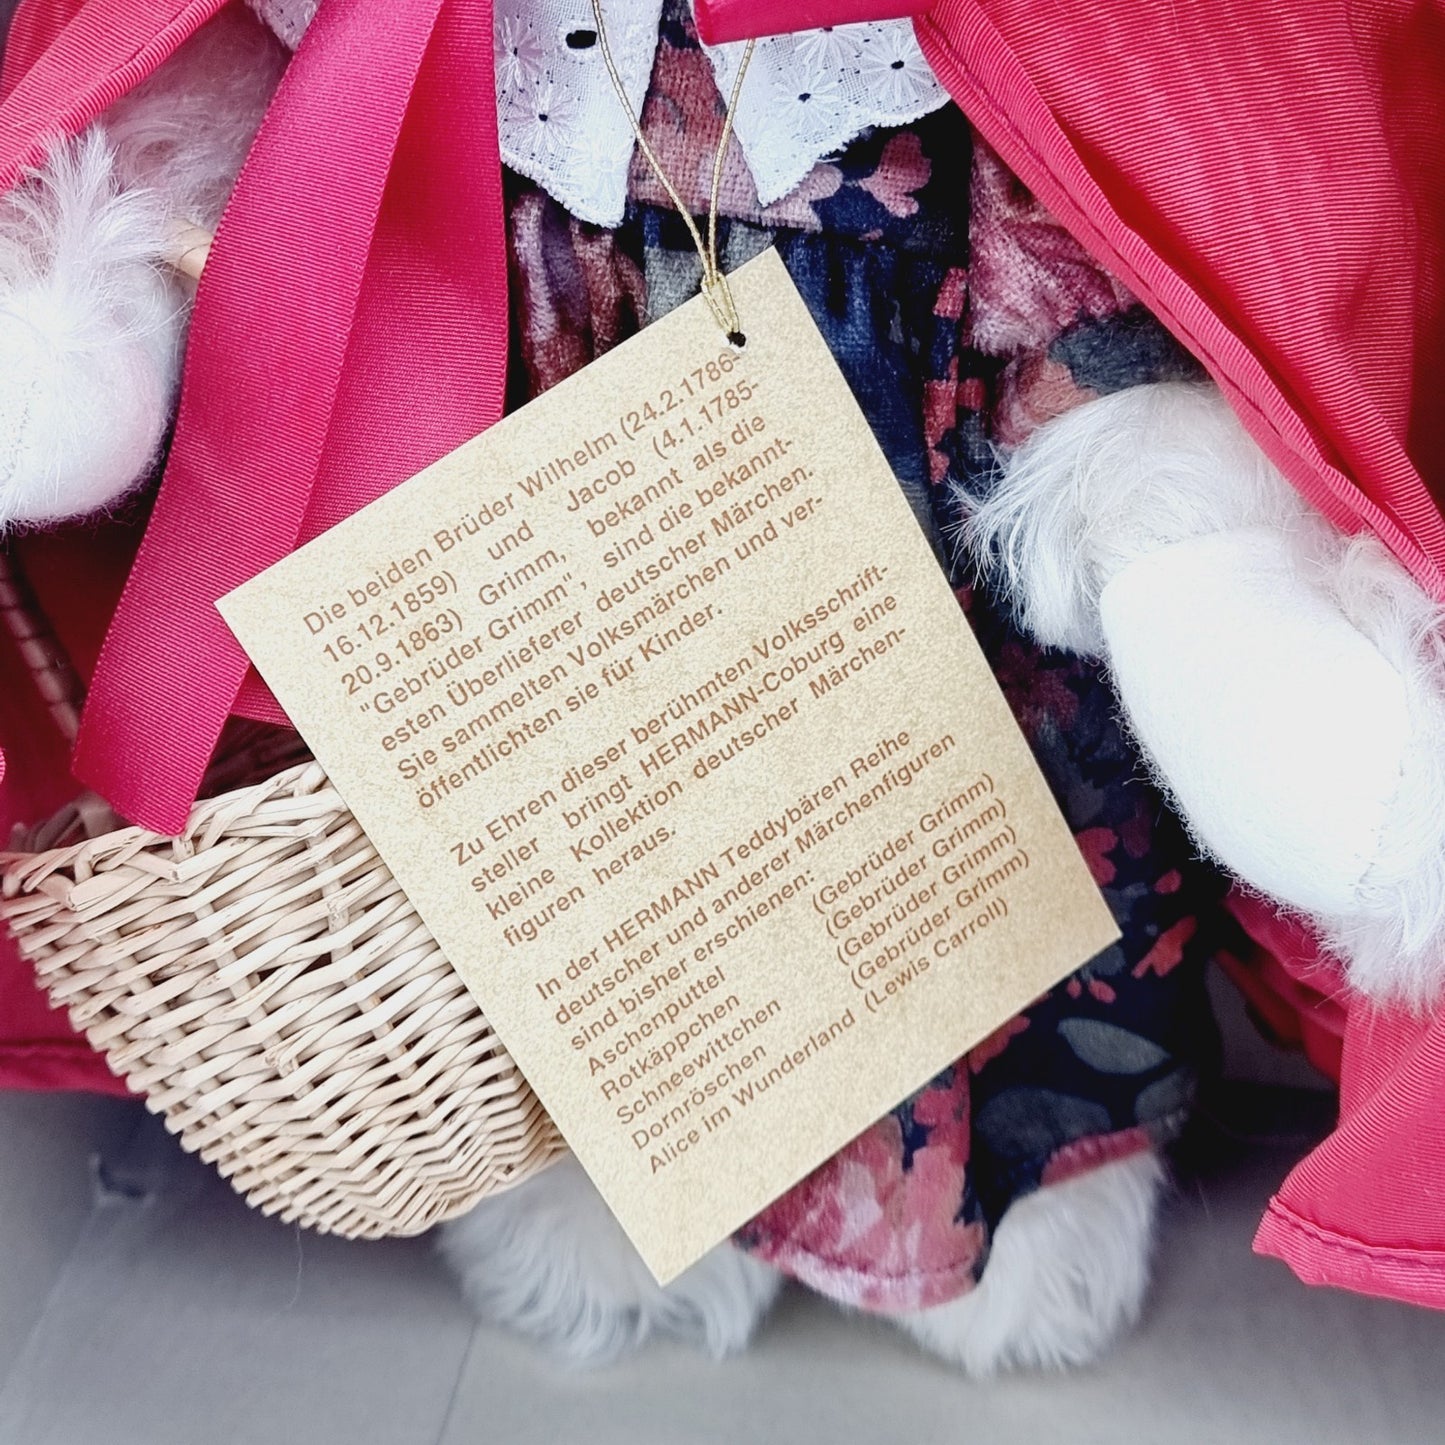 Die beiden Brüder Wilhelm (24.2.1786-
16.12.1859) und Jacob (4.1.1785-
20.9.1863) Grimm, bekannt als die
"Gebrüder Grimm", sind die bekannt-
esten Überlieferer deutscher Märchen.
Sie sammelten Volksmärchen und ver-
öffentlichten sie für Kinder.
Zu Ehren dieser berühmten Volksschrift-
steller bringt HERMANN-Coburg eine
kleine Kollektion deutscher Märchen-
figuren heraus.
In der HERMANN Teddybären Reihe
deutscher und anderer Märchenfiguren
sind bisher erschienen:
Aschenputtel (Gebrüder Grimm)
Rotkäppchen (Gebrüder Grimm)
Schneewittchen (Gebrüder Grimm)
Dornröschen (Gebrüder Grimm)
Alice im Wunderland (Lewis Carroll)